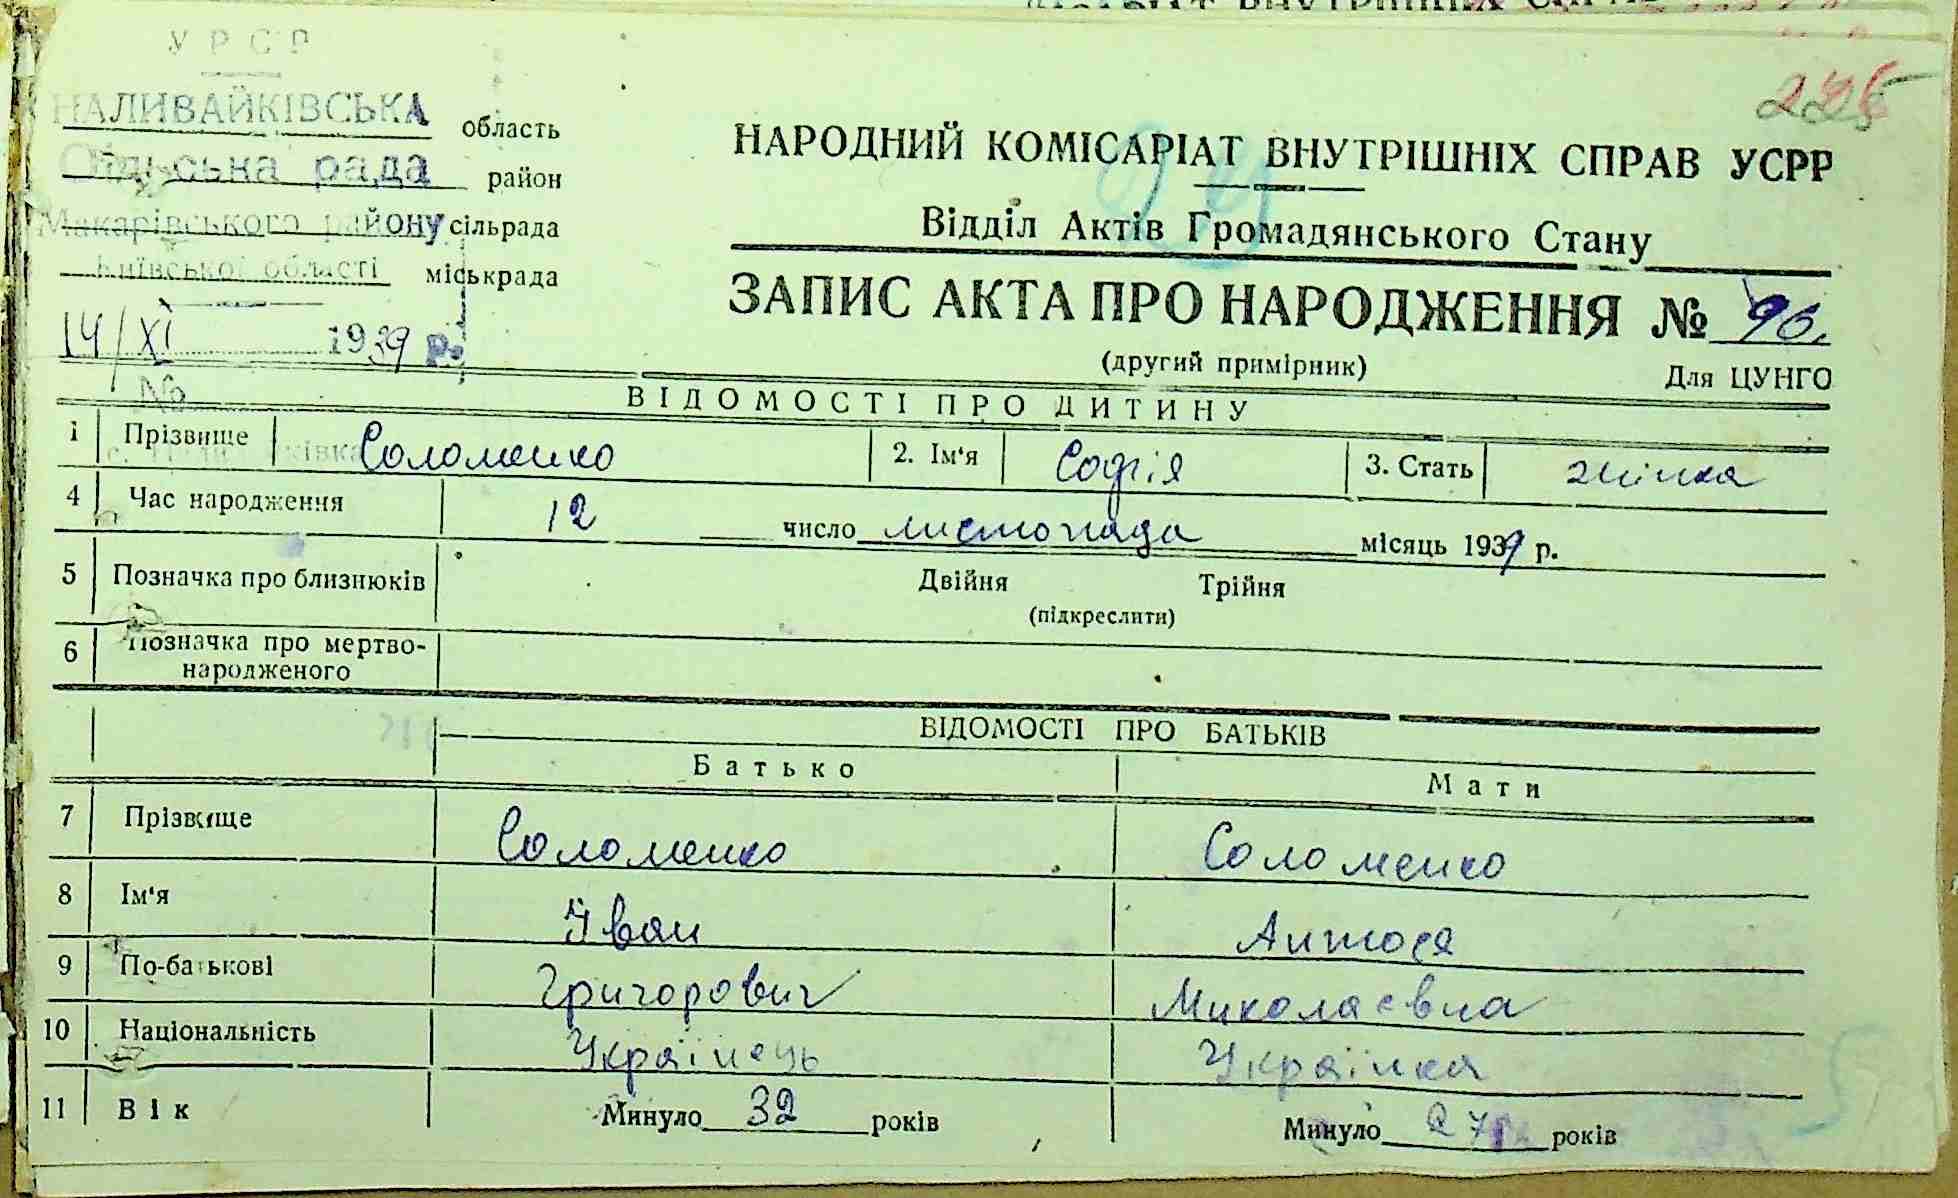 УРСР
НАЛИВАЙКІВСЬКА область
Сільська рада район
Макарівського району сільрада
Київської області міськрада
14/XI 1939 р.
№
225
НАРОДНИЙ КОМІСАРІАТ ВНУТРІШНІХ СПРАВ УСРР
Відділ Актів Громадянського Стану
ЗАПИС АКТА ПРО НАРОДЖЕННЯ № 96.
(другий примірник) Для ЦУНГО
ВІДОМОСТІ ПРО ДИТИНУ
1 Прізвище Соломенко 2. Ім'я Софія 3. Стать жінка
4 Час народження 12 число листопада місяць 1939 р.
5 Позначка про близнюків Двійня Трійня
(підкреслити)
6 Позначка про мертво-
народженого
ВІДОМОСТІ ПРО БАТЬКІВ
Батько Мати
7 Прізвище Соломенко Соломенко
8 Ім'я Іван Антося
9 По-батькові Григорович Миколаєвна
10 Національність Українець Українка
11 Вік Минуло 32 років Минуло 27 років